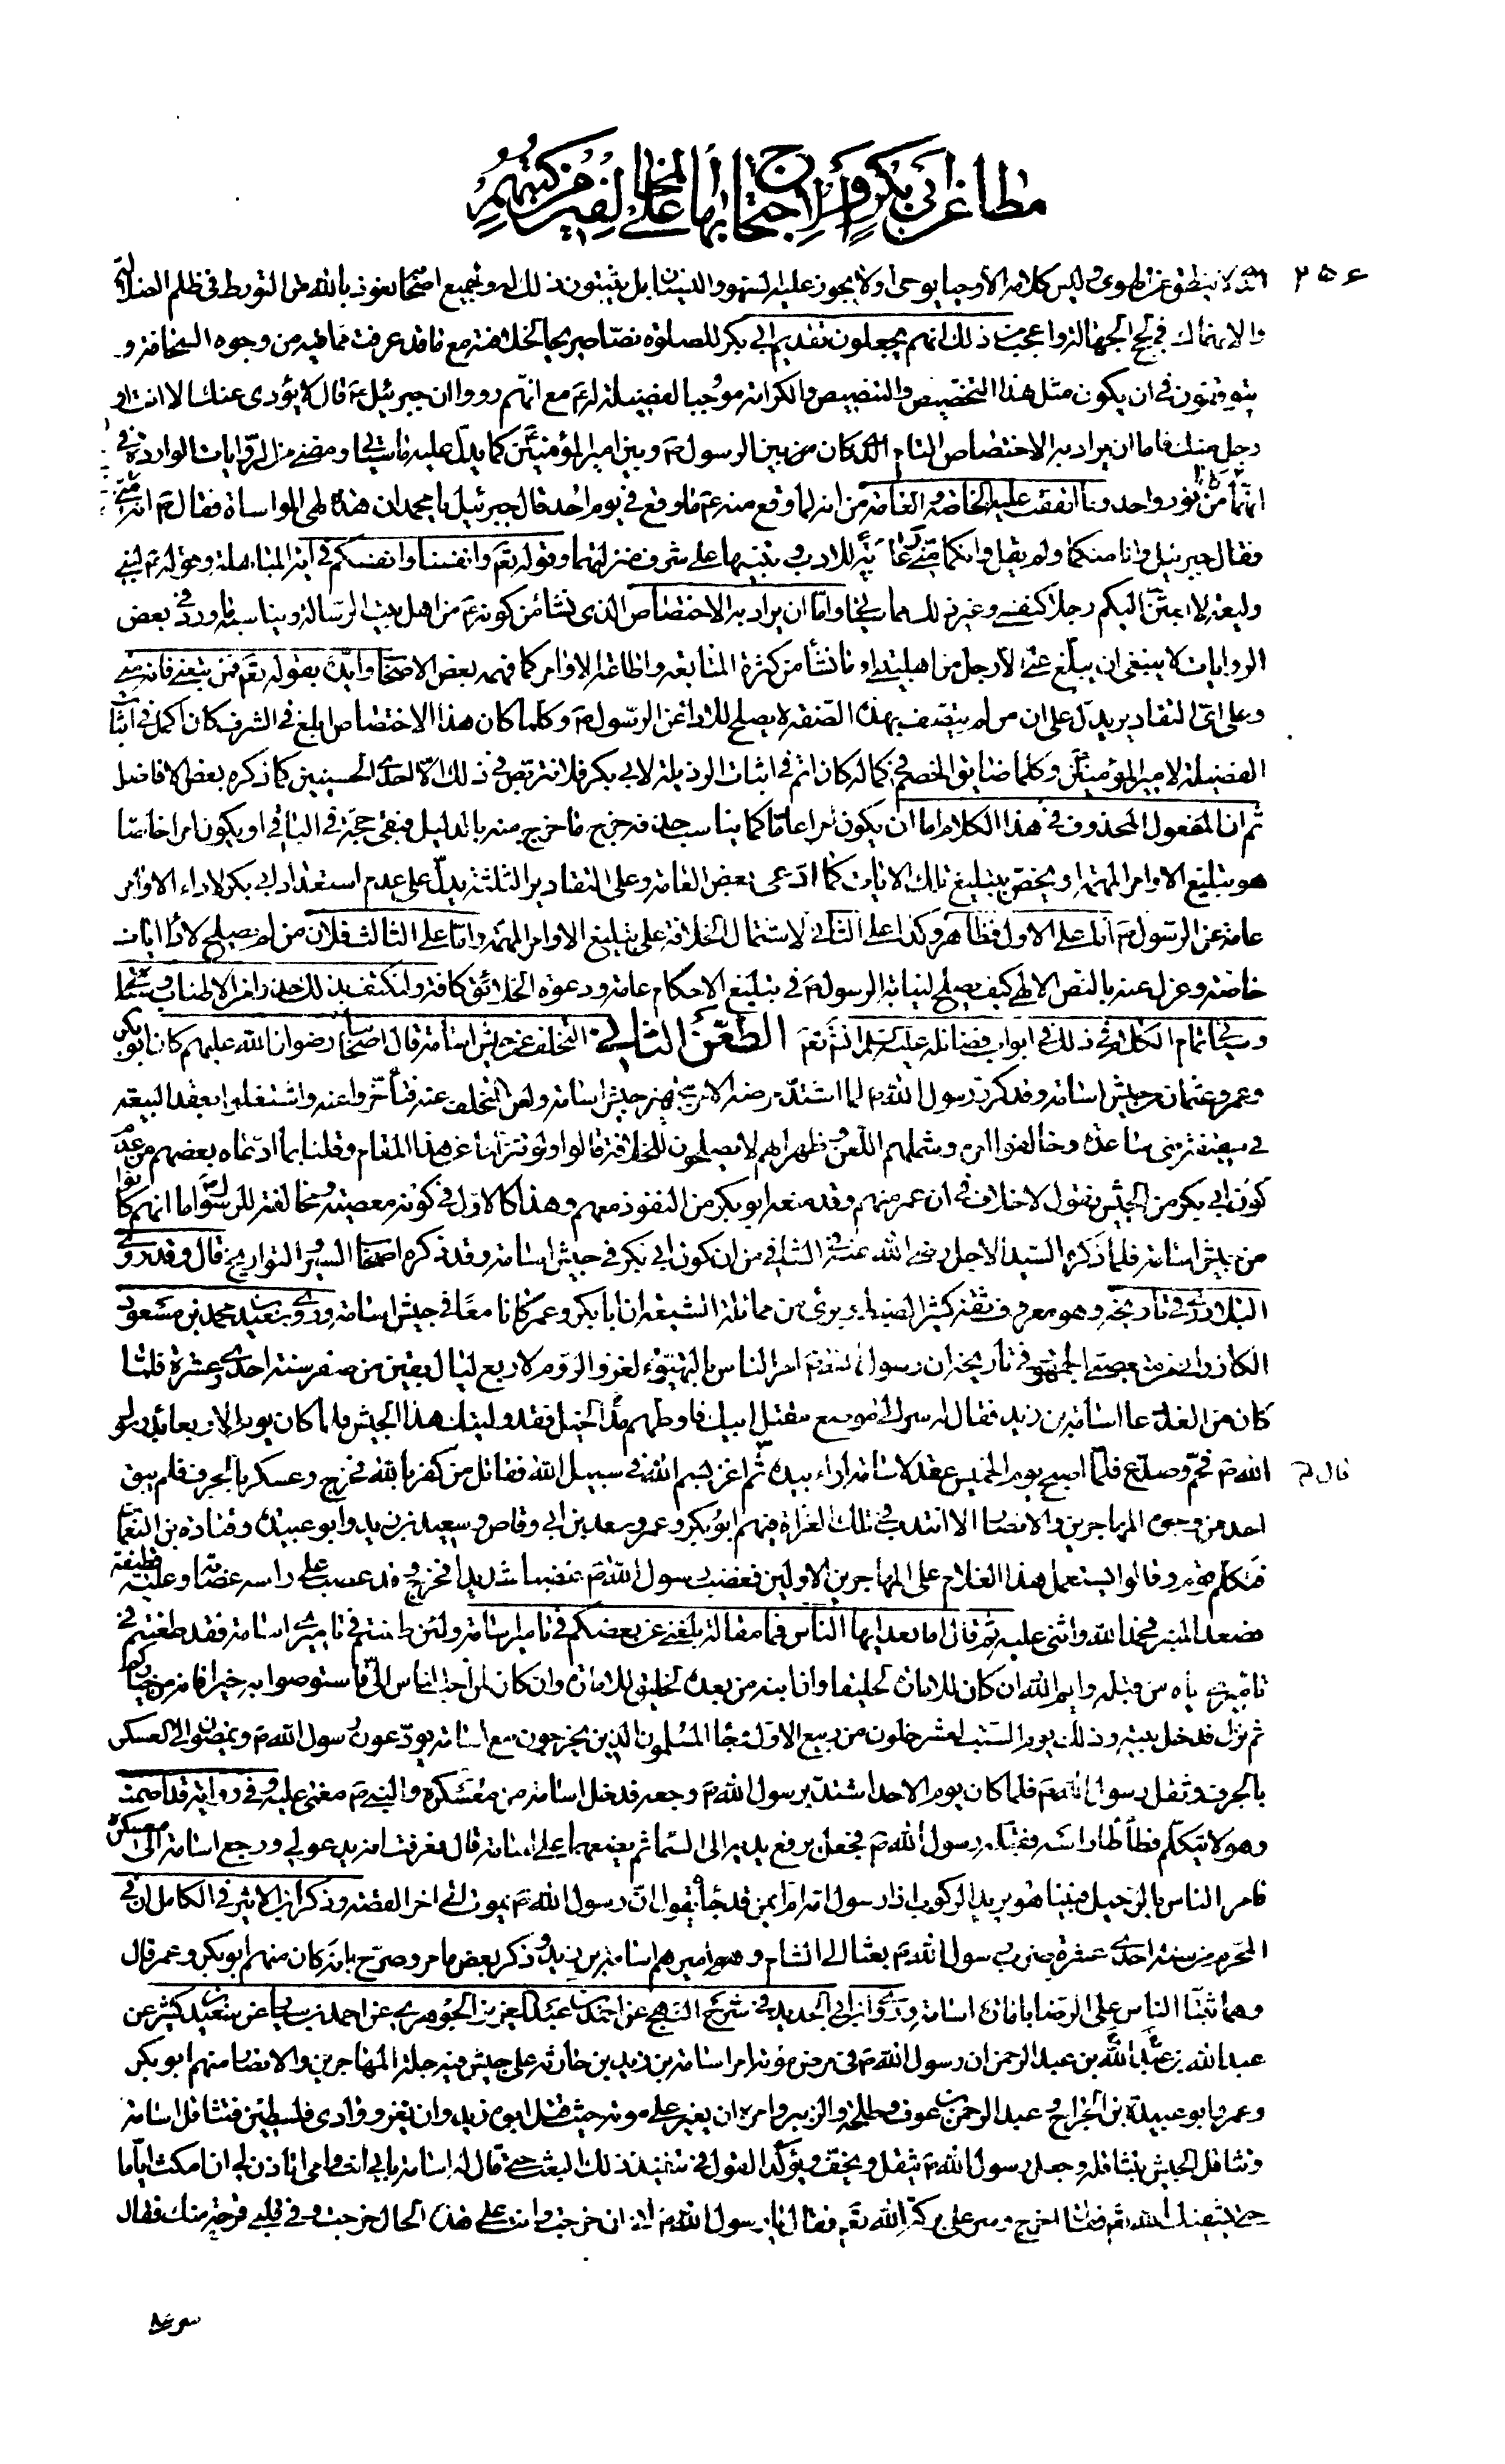 مطاعن ابى بكر و الاحتجاج بها على المخالفين من كتبهم
٢٥٤
لا ينطق عن الهوى وليس كلامه الا وحيا يوحى ولا يجوز عليه السهو والنسيان بل يثبتون ذلك له ولجميع اصحابه نعوذ بالله من التورط فى ظلم الضلالة
والانهماك فى لجج الجهالة واعجب من ذلك انهم يجعلون تقديم ابى بكر للصلوة نصا صريحا لخلافته مع ما قد عرفت مما فيه من وجوه السخافة و
يتوقفون فى ان يكون مثل هذا التخصيص والتنصيص والكرامة موجبا لفضيلة له ع مع انهم رووا ان جبرئيل ع قال لا يؤدى عنك الا انت او
رجل منك فاما ان يراد به الاختصاص التام الذى كان من بين الرسول ص وبين امير المؤمنين كما يدل عليه ما سياتى و مضى من الروايات الواردة فى
انهما كانا من نور واحد وما اتفقت عليه الخاصة والعامة من انه لما وقع منه ع ما وقع فى يوم احد قال جبرئيل يا محمد ان هذه لهى المواساة فقال ص انه منى
فقال جبرئيل وانا منكما ولم يقل وانكما منى رعاية للادب و تنبيها على شرف منزلتهما وقوله تعم وانفسنا وانفسكم فى اية المباهلة وقوله ص لبنى
وليعة لابعثن اليكم رجلا كنفسى وغير ذلك مما سياتى واما ان يراد به الاختصاص الذى نشأ من كونه ع من اهل بيت الرسالة ويناسبه ما ورد فى بعض
الروايات لا ينبغى ان يبلغ عنى الا رجل من اهل بيتى او ما نشأ من كثرة المتابعة و اطاعة الاوامر كما فهمه بعض الاصحاب وايده بقوله تعم فمن تبعنى فانه منى
وعلى اى التقادير يدل على ان من لم يتصف بهذه الصفة لا يصلح للاداء عن الرسول ص وكلما كان هذا الاختصاص ابلغ فى الشرف كان اكمل فى اثبات
الفضيلة لامير المؤمنين وكلما ضايق الخصم فى كماله كان اتم فى اثبات الرذيلة لابى بكر فلا نتربص فى ذلك الا احدى الحسنيين كما ذكره بعض الافاضل
ثم ان المفعول المحذوف فى هذا الكلام اما ان يكون امرا عاما كما يناسب حذفه خرج ما خرج منه بالدليل فبقى حجة فى الباقى او يكون امرا خاصا
هو تبليغ الاوامر المهمة او يخص بتبليغ تلك الايات كما ادعى بعض العامة وعلى التقادير الثلثة يدل على عدم استعداد ابى بكر لاداء الاوامر
عامة عن الرسول ص اما على الاول فظاهر وكذا على الثانى لاشتمال الخلافة على تبليغ الاوامر المهمة واما على الثالث فلان من لم يصلح لاداء ايات
خاصة وعزل عنه بالنص الالهى كيف يصلح لنيابة الرسول ص فى تبليغ الاحكام عامة ودعوة الخلائق كافة ولنكتف بذلك حذرا من الاطناب
وسياتى تمام الكلام فى ذلك فى ابواب فضائله عليه السلم انشاء الله تعم الطعن الثانى التخلف عن جيش اسامة قال اصحابنا رضوان الله عليهم كان ابو بكر
وعمر وعثمان من جيش اسامة وقد كرر رسول الله ص لما اشتد مرضه الامر بتجهيز جيش اسامة ولعن المتخلف عنه فتأخروا عنه واشتغلوا بعقد البيعة
فى سقيفة بنى ساعدة وخالفوا امره وشملهم اللعن وظهر انهم لا يصلحون للخلافة قالوا ولو تنزلنا عن هذا المقام وقلنا بما ادعاه بعضهم من عدم
كون ابى بكر من الجيش نقول لا خلاف فى ان عمر منهم وقد منعه ابو بكر من النفوذ معهم وهذا كالاول فى كونه معصية ومخالفة للرسول ص اما انهم كانوا
من جيش اسامة فلما ذكره السيد الاجل رضى الله عنه فى الشافى من ان كون ابى بكر فى جيش اسامة قد ذكره اصحاب السير والتواريخ قال وقد روى
البلاذرى فى تاريخه وهو معروف ثقة كثير الضبط وبرى من ممائلة الشيعة ان ابا بكر وعمر كانا معا فى جيش اسامة وروى سعيد بن محمد بن مسعود
الكازرانى من متعصبى الجمهور فى تاريخه ان رسول الله ص امر الناس بالتهيؤ لغزو الروم لاربع ليال بقين من صفر سنة احدى عشرة فلما
كان من الغد دعا اسامة بن زيد فقال له سر الى موضع مقتل ابيك فاوطئهم الخيل فقد وليتك هذا الجيش فلما كان يوم الاربعاء بدئ برسول
الله ص فحم وصدع فلما اصبح يوم الخميس عقد لاسامة لواء بيده ثم قال اغز بسم الله فى سبيل الله فقاتل من كفر بالله فخرج وعسكر بالجرف فلم يبق
احد من وجوه المهاجرين والانصار الا انتدب فى تلك الغزاة فيهم ابو بكر وعمر وسعد بن ابى وقاص وسعيد بن زيد وابو عبيدة وقتادة بن النعمان
فتكلم قوم وقالوا يستعمل هذا الغلام على المهاجرين الاولين فغضب رسول الله ص غضبا شديدا فخرج وقد عصب على راسه عصابة وعليه قطيفة
فصعد المنبر فحمد الله واثنى عليه ثم قال اما بعد ايها الناس فما مقالة بلغتنى عن بعضكم فى تاميرى اسامة ولئن طعنتم فى تاميرى اسامة فقد طعنتم فى
تاميرى اباه من قبله وايم الله ان كان للامارة لخليقا وان ابنه من بعده لخليق للامارة وان كان لمن احب الناس الى فاستوصوا به خيرا فانه من خياركم
ثم نزل فدخل بيته وذلك يوم السبت لعشر خلون من ربيع الاول وجاء المسلمون الذين يخرجون مع اسامة يودعون رسول الله ص ويمضون الى العسكر
بالجرف وثقل رسول الله ص فلما كان يوم الاحد اشتد برسول الله ص وجعه فدخل اسامة من معسكره والنبى ص مغمى عليه وفى رواية قد اصمت
وهو لا يتكلم فطأطأ راسه فقبله رسول الله ص فجعل يرفع يديه الى السماء ثم يضعهما على اسامة قال فعرفت انه يدعو لى ورجع اسامة الى معسكره
فامر الناس بالرحيل فبينا هو يريد الركوب اذا رسول امه ام ايمن قد جاء يقول ان رسول الله ص يموت الى اخر القصة وذكر ابن الاثير فى الكامل ان فى
المحرم من سنة احدى عشرة ضرب رسول الله ص بعثا الى الشام واميرهم اسامة بن زيد وذكر بعض ما مر وصرح بانه كان منهم ابو بكر وعمر قال
وهما ثبتا الناس على الرضا بامارة اسامة وروى ابن ابى الحديد فى شرح النهج عن احمد بن عبد العزيز الجوهرى عن احمد بن سيار عن سعيد بن كثير عن
عبد الله بن عبد الله بن عبد الرحمن ان رسول الله ص فى مرض موته امر اسامة بن زيد بن حارثة على جيش فيه جلة المهاجرين والانصار منهم ابو بكر
وعمر وابو عبيدة بن الجراح و عبد الرحمن بن عوف وطلحة والزبير وامره ان يغير على موتة حيث قتل ابوه زيد وان يغزو وادى فلسطين فتثاقل اسامة
وتثاقل الجيش بتثاقله وجعل رسول الله ص يثقل ويخف ويؤكد القول فى تنفيذ ذلك البعث حتى قال له اسامة بابى انت وامى اتاذن لى ان امكث اياما
حتى يشفيك الله تعم فقال اخرج وسر على بركة الله تعم فقال يا رسول الله ص انى ان خرجت وانت على هذه الحال خرجت وفى قلبى قرحة منك فقال
سر على